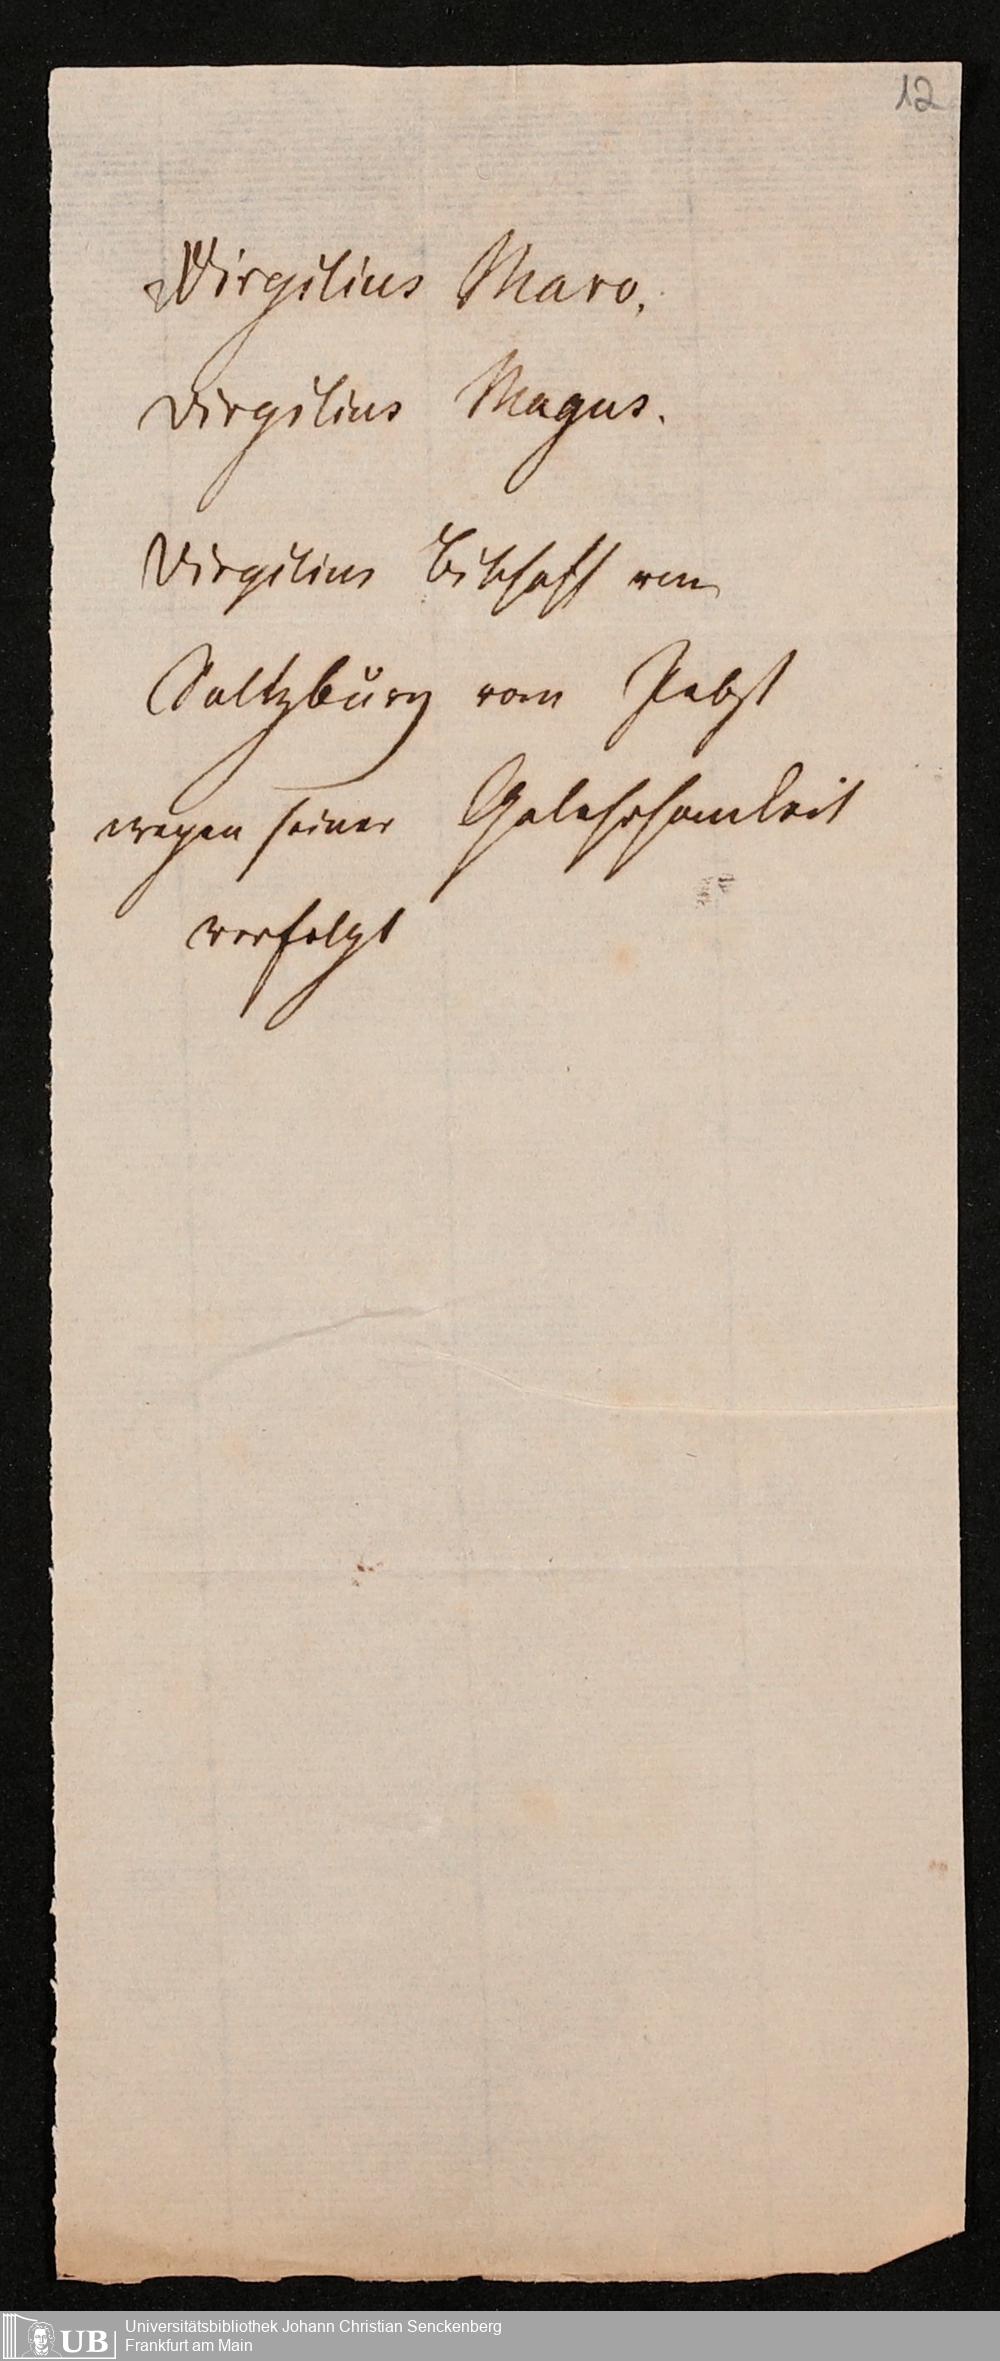 12
Virgilius Maro.
Virgilius Magus.
Virgilius Bischoff von
Saltzburg vom Pabst
wegen seiner Gelehrsamkeit
verfolgt
UB
Universitätsbibliothek Johann Christian Senckenberg
Frankfurt am Main